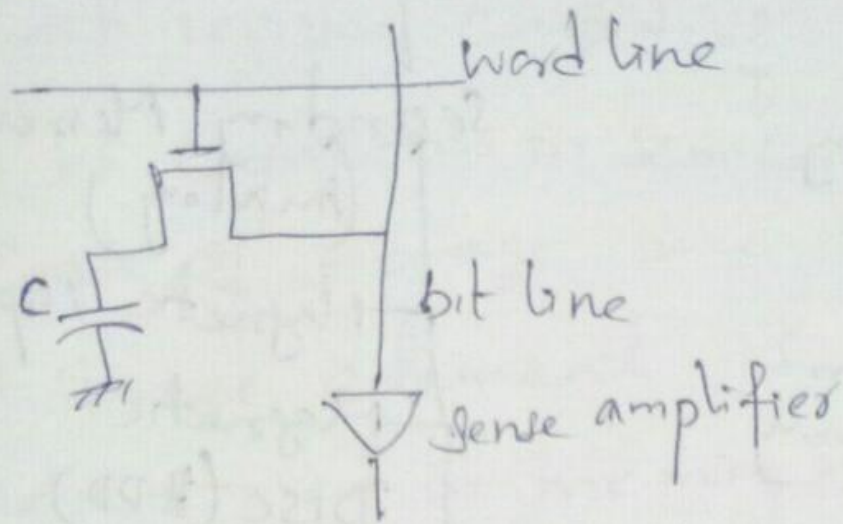 word line
C
bit line
sense amplifier